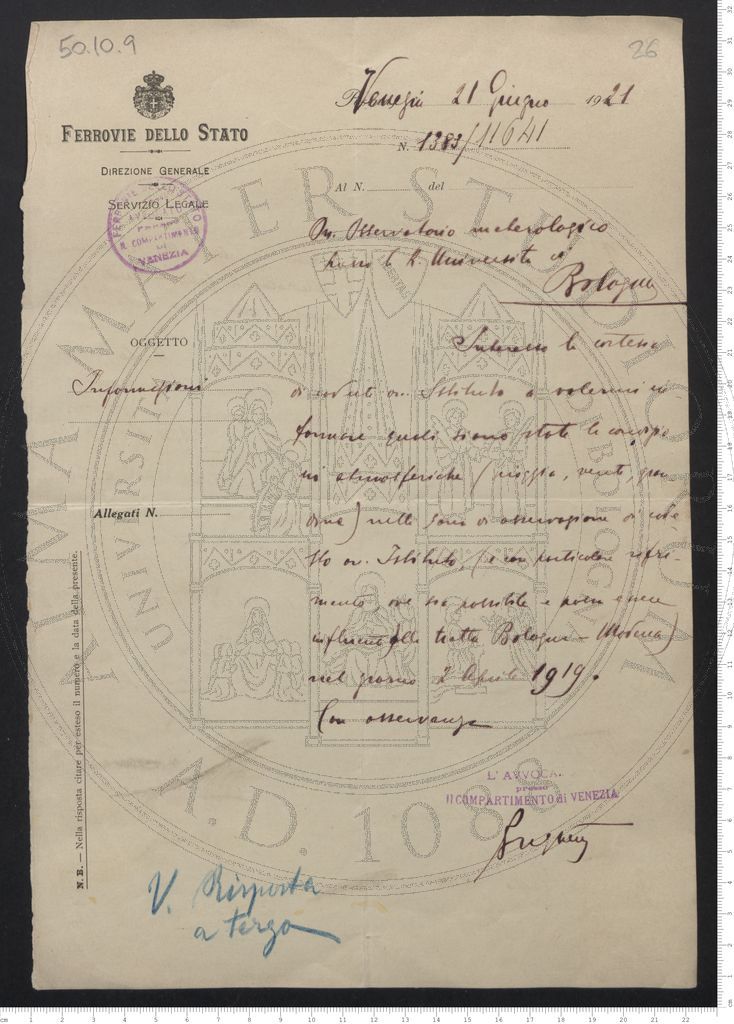 50.10.9
26
FERROVIE DELLO STATO
DIREZIONE GENERALE
SERVIZIO LEGALE
IL COMPARTIMENTO
DI
VENEZIA
Venezia 21 Giugno 1921
N. 1383/11641
Al N. del
On. Osservatorio meterologico
presso la R. Università di
Bologna
OGGETTO
Informazioni
Allegati N.
Interesso la cortesia
di codesto on. Istituto a volermi in-
formare quali siano state le condizio
ni atmosferiche (pioggia, vento, gran
dine) nella zona di osservazione di code
sto on. Istituto, (e con particolare riferi-
mento ove sia possibile e possa essere
influente alla tratta Bologna - Modena)
nel giorno 2 Aprile 1919.
Con osservanza
L'AVVOCA.
presso
Il COMPARTIMENTO di VENEZIA
V. Risposta
a tergo
N. B. — Nella risposta citare per esteso il numero e la data della presente.
ALMA MATER STUDIORUM
UNIVERSITÀ DI BOLOGNA
A.D. 1088